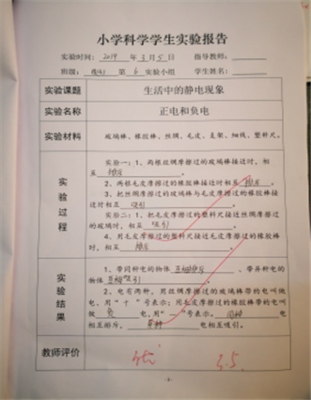 小学科学学生实验报告
实验时间：2019 年 3 月 5 日 指导教师：
班级： 第 6 实验小组 学生姓名：
实验课题 生活中的静电现象
实验名称 正电和负电
实验材料 玻璃棒、橡胶棒、丝绸、毛皮、支架、细线、塑料尺。
实验过程
实验一：1、两根丝绸摩擦过的玻璃棒接近时，相
互 排斥 。
2、两根毛皮摩擦过的橡胶棒接近时相互 排斥 。
3、把丝绸摩擦过的玻璃棒与毛皮摩擦过的橡胶棒接
近时相互 吸引 。
实验二：1、把毛皮摩擦过的塑料尺接近丝绸摩擦过
的玻璃时，相互 吸引 。
4、用毛皮摩擦过的塑料尺接近毛皮摩擦过的橡胶棒
时，相互 排斥 。
实验结果
1、带同种电的物体 互相排斥 ，带异种电的
物体 互相吸引 。
2、电有两种，用丝绸摩擦过玻璃棒带的电叫做
电，用“+”号表示；用毛皮摩擦过的橡胶棒带的电叫
做 负 电，用“-”号表示。 同种 电
相互排斥， 异种 电相互吸引。
教师评价 优 3.5